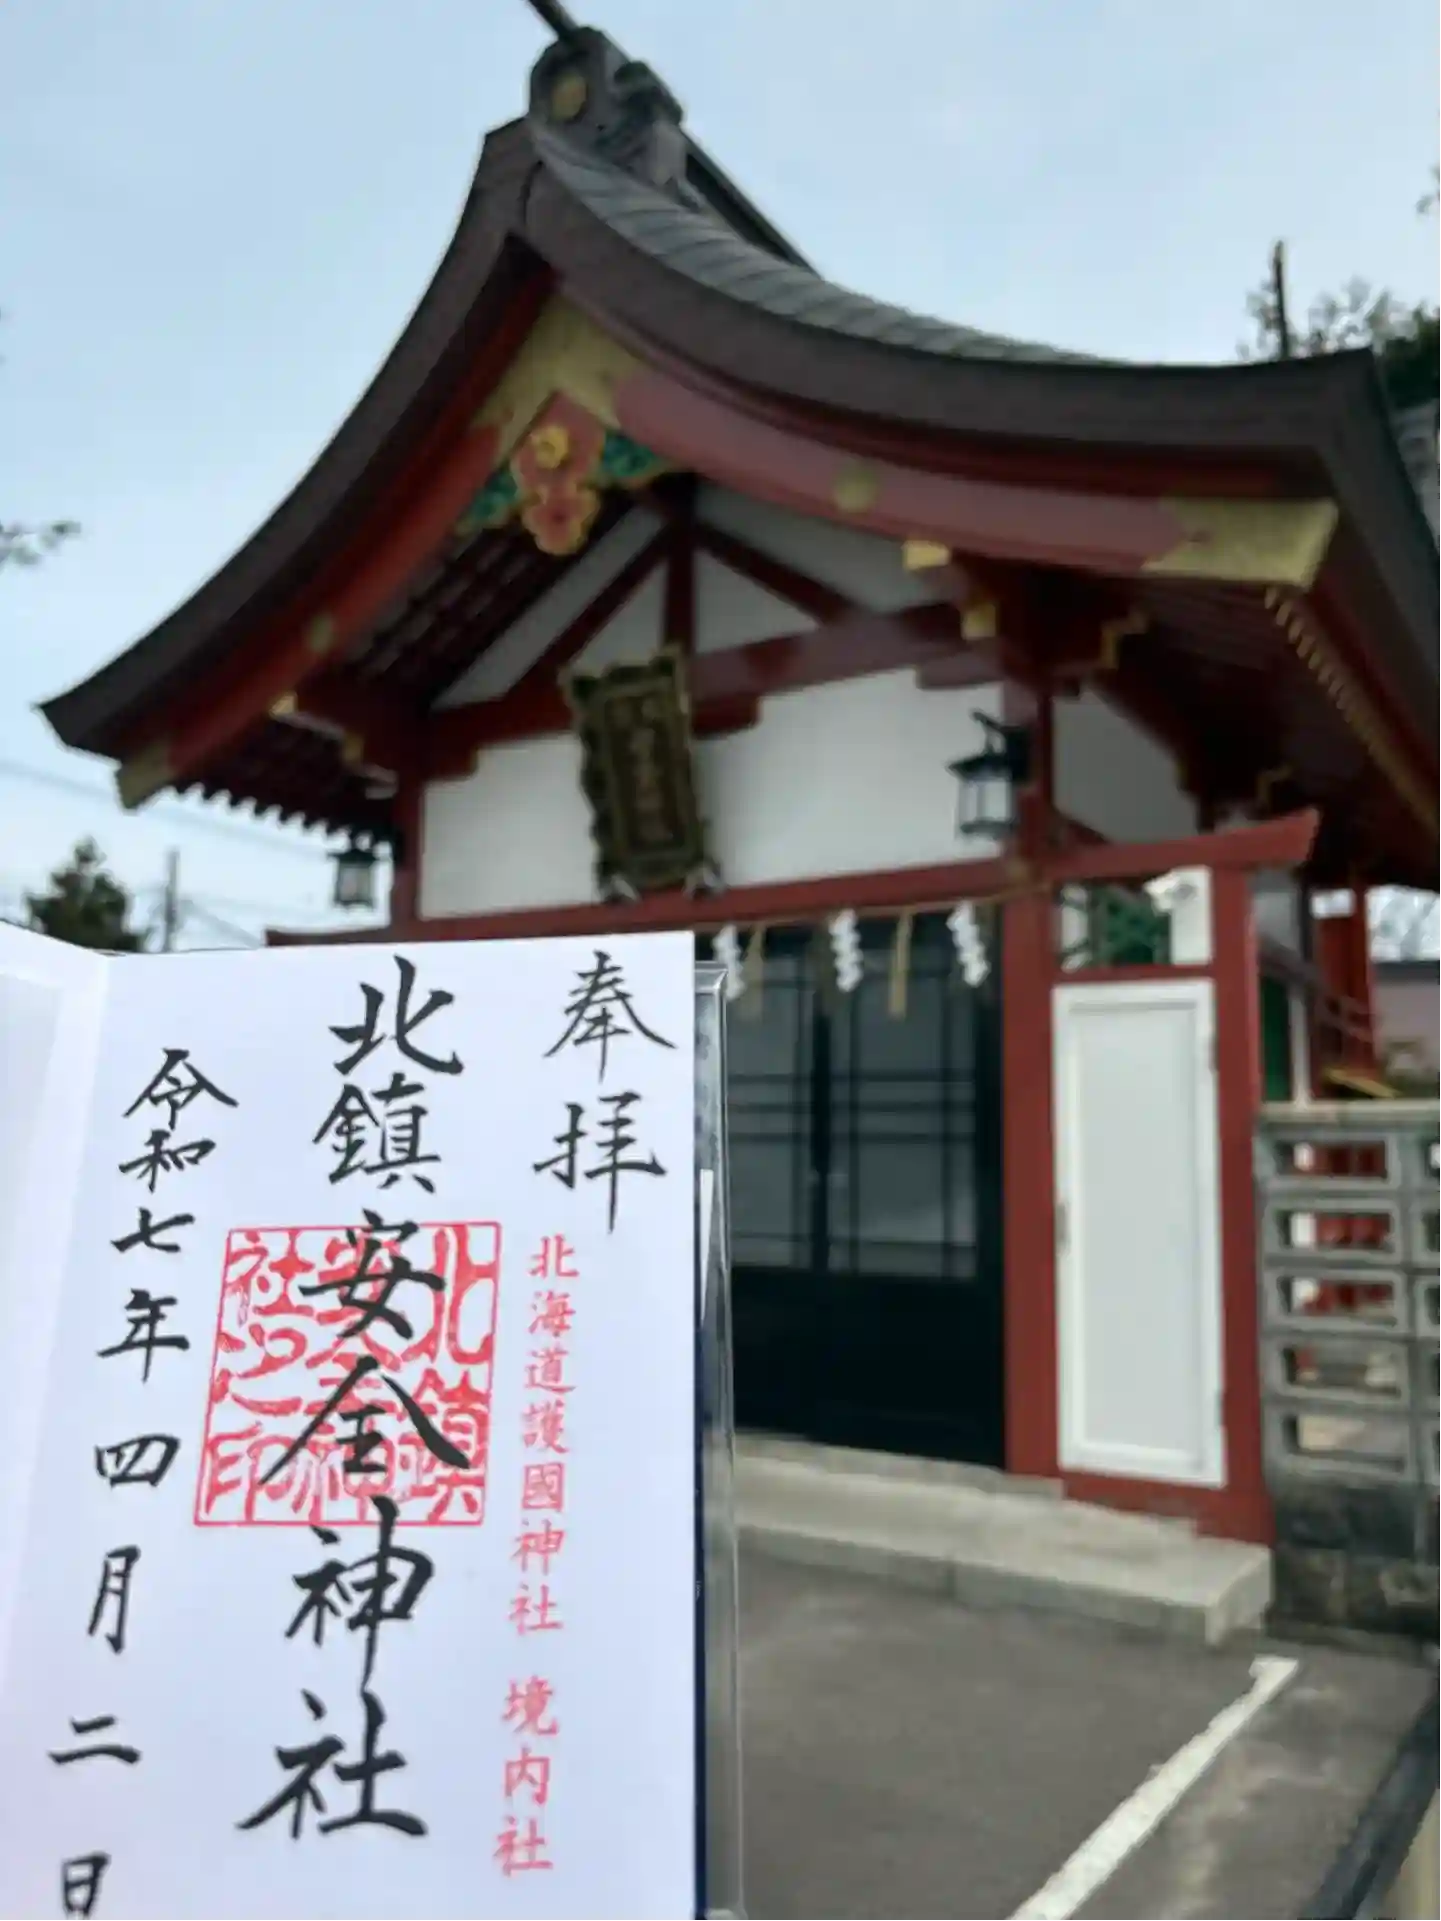 奉拝
北海道護國神社 境内社
北鎮安全神社
北鎮安全神社之印
令和七年四月二日